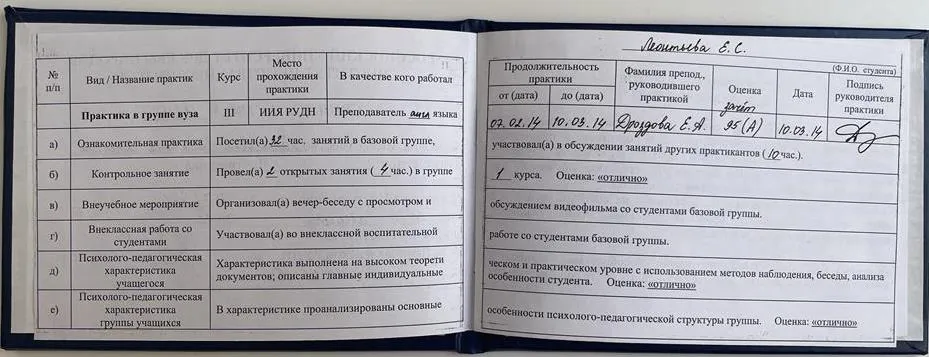 Леонтьева Е. С.
(Ф.И.О. студента)
№ п/п Вид / Название практик Курс Место прохождения практики В качестве кого работал Продолжительность практики от (дата) до (дата) Фамилия препод., руководившего практикой Оценка Дата Подпись руководителя практики
Практика в группе вуза III ИИЯ РУДН Преподаватель англ языка 07.02.14 10.03.14 Дроздова Е.А. зачёт 95 (А) 10.03.14
а) Ознакомительная практика Посетил(а) 32 час. занятий в базовой группе, участвовал(а) в обсуждении занятий других практикантов (10 час.).
б) Контрольное занятие Провел(а) 2 открытых занятия ( 4 час.) в группе 1 курса. Оценка: «отлично»
в) Внеучебное мероприятие Организовал(а) вечер-беседу с просмотром и обсуждением видеофильма со студентами базовой группы.
г) Внеклассная работа со студентами Участвовал(а) во внеклассной воспитательной работе со студентами базовой группы.
д) Психолого-педагогическая характеристика учащегося Характеристика выполнена на высоком теорети ческом и практическом уровне с использованием методов наблюдения, беседы, анализа документов; описаны главные индивидуальные особенности студента. Оценка: «отлично»
е) Психолого-педагогическая характеристика группы учащихся В характеристике проанализированы основные особенности психолого-педагогической структуры группы. Оценка: «отлично»